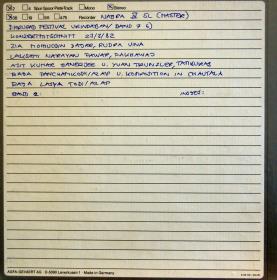 2 4 Spur Spool-Peter-Track Mono Stereo
38 19 9.5 4.75 Recorder NAGRA IV SL (MASTER)
DHRUPAD FESTIVAL VRINDABAN / BAND 7
KONZERTMITSCHNITT 23/2/82
ZIA MOHIUDDIN DAGAR, RUDRA VINA
LAKSMI NARAYAN PAWAR, PAKHAWAJ
AJIT KUMAR BANERJEE U. YVAN TRUNZLER, TAMBURAS
RAGA PANCHAMKOSH / ALAP U. KOMPOSITION IN CHAUTALA
RAGA TODI / ALAP
BAND 2:
AGFA-GEVAERT AG D-5090 Leverkusen 1 · Made in Germany